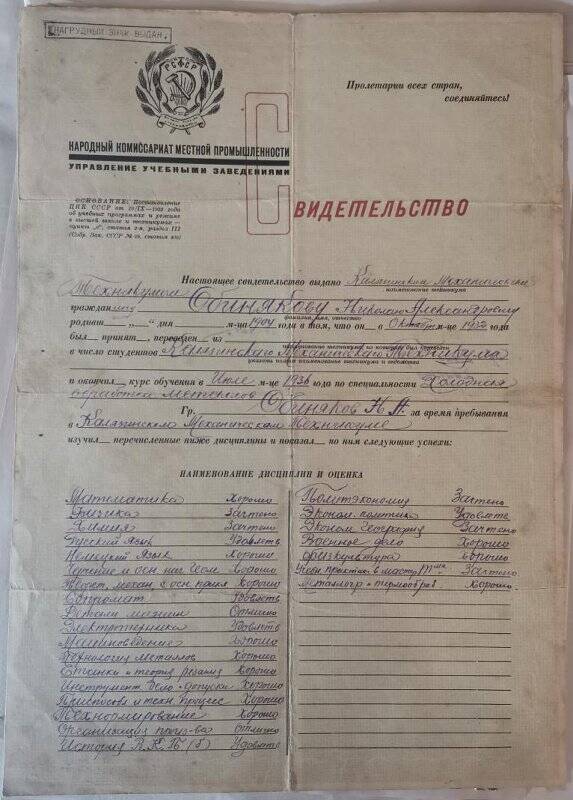 НАГРУДНЫЙ ЗНАК ВЫДАН.
РСФСР
Пролетарии всех стран,
соединяйтесь!
НАРОДНЫЙ КОМИССАРИАТ МЕСТНОЙ ПРОМЫШЛЕННОСТИ
УПРАВЛЕНИЕ УЧЕБНЫМИ ЗАВЕДЕНИЯМИ
СВИДЕТЕЛЬСТВО
ОСНОВАНИЕ: Постановление
ЦИК СССР от 19/IX—1932 года
об учебных программах и режиме
в высшей школе и техникумах—
статья 2-я, раздел III
(Собр. Зак. СССР № 68, статья 409)
Настоящее свидетельство выдано Калязинским Механическим
наименование техникума
Техникумом
гражданину Обнякову Николаю Александровичу
фамилия, имя, отчество
родивш „ “ дня м-ца 1904 года в том, что он в Октябре м-це 1932 года
был принят, переведен из
в число студентов Калязинского Механического Техникума
и окончил курс обучения в Июле м-це 1936 года по специальности Холодная
обработка металлов
Гр. Обняков Н А. за время пребывания
в Калязинском Механическом Техникуме
изучил перечисленные ниже дисциплины и показал по ним следующие успехи:
НАИМЕНОВАНИЕ ДИСЦИПЛИН И ОЦЕНКА
Математика Хорошо
Физика Зачтено
Химия Зачтено
Русский Язык Удовлетв
Немецкий Язык Хорошо
Черчение и осн нач Геом Хорошо
Теорет. механ. с осн прикл Хорошо
Сопромат Удовлетв
Детали машин Отлично
Электротехника Удовлетв
Машиноведение Хорошо
Технология Металлов Хорошо
Станки и теория резания Хорошо
Инструмент. дело и допуски Хорошо
Приспособ и техн процесс Хорошо
Технормирование Хорошо
Организация произ-ва Отлично
История В.К.П.(б) Удовлетв
Политэкономия Зачтено
Эконом. политика Удовлетв
Эконом География Зачтено
Военное дело Хорошо
Физкультура Хорошо
Учебн практик. в маст. Т-ма Зачтено
Металлогр и термообраб Хорошо.